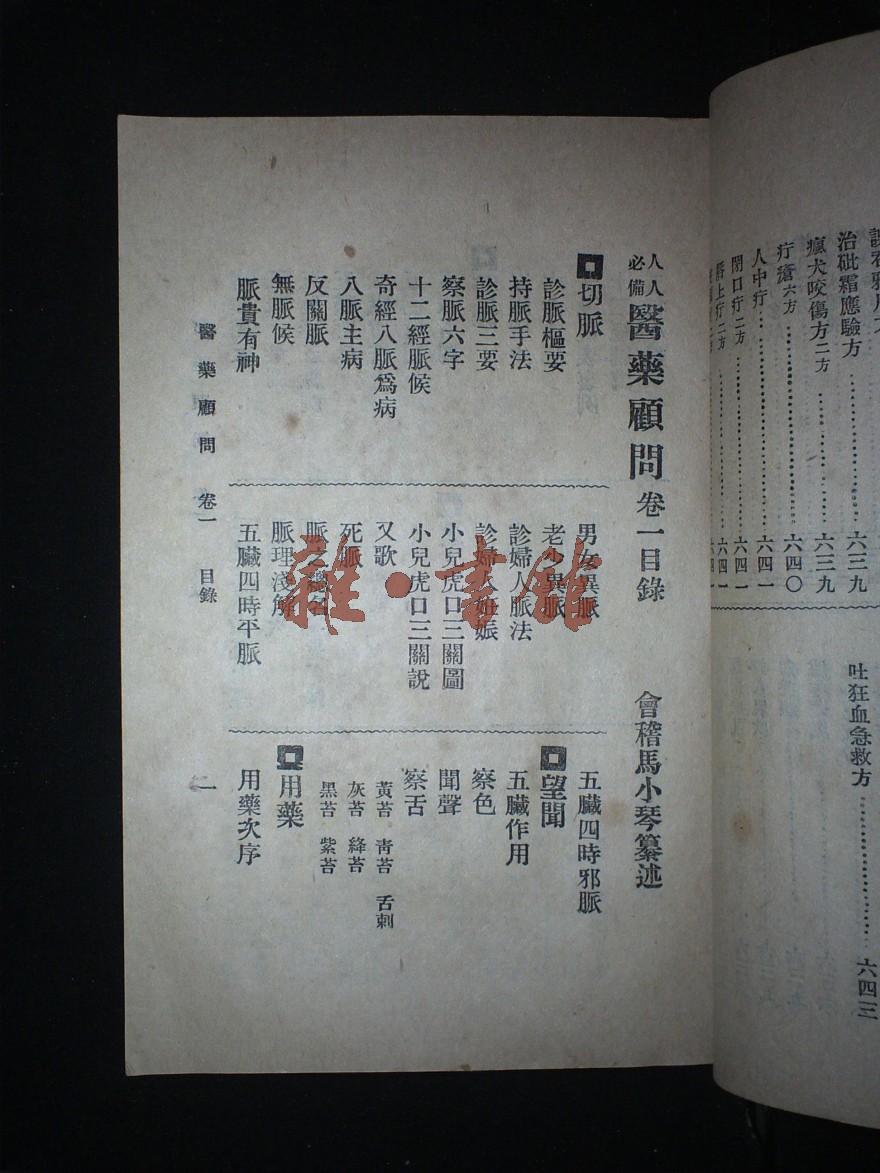 治砒霜應驗方……六三九
瘋犬咬傷方二方……六三九
疔瘡六方……六四〇
人中疔……六四一
閉口疔二方……六四一
唇上疔二方……六四一
吐狂血急救方……六四三
人人必備 醫藥顧問 卷一目錄 會稽馬小琴纂述
切脈
診脈樞要
持脈手法
診脈三要
察脈六字
十二經脈候
奇經八脈爲病
八脈主病
反關脈
無脈候
脈貴有神
男女異脈
老少異脈
診婦人脈法
診婦人妊娠
小兒虎口三關圖
小兒虎口三關說
又歌
死脈
脈之總名
脈理淺解
五臟四時平脈
五臟四時邪脈
望聞
五臟作用
察色
聞聲
察舌
黃苔 靑苔 舌刺
灰苔 絳苔
黑苔 紫苔
用藥
用藥次序
醫藥顧問 卷一 目錄
一
雜·書館